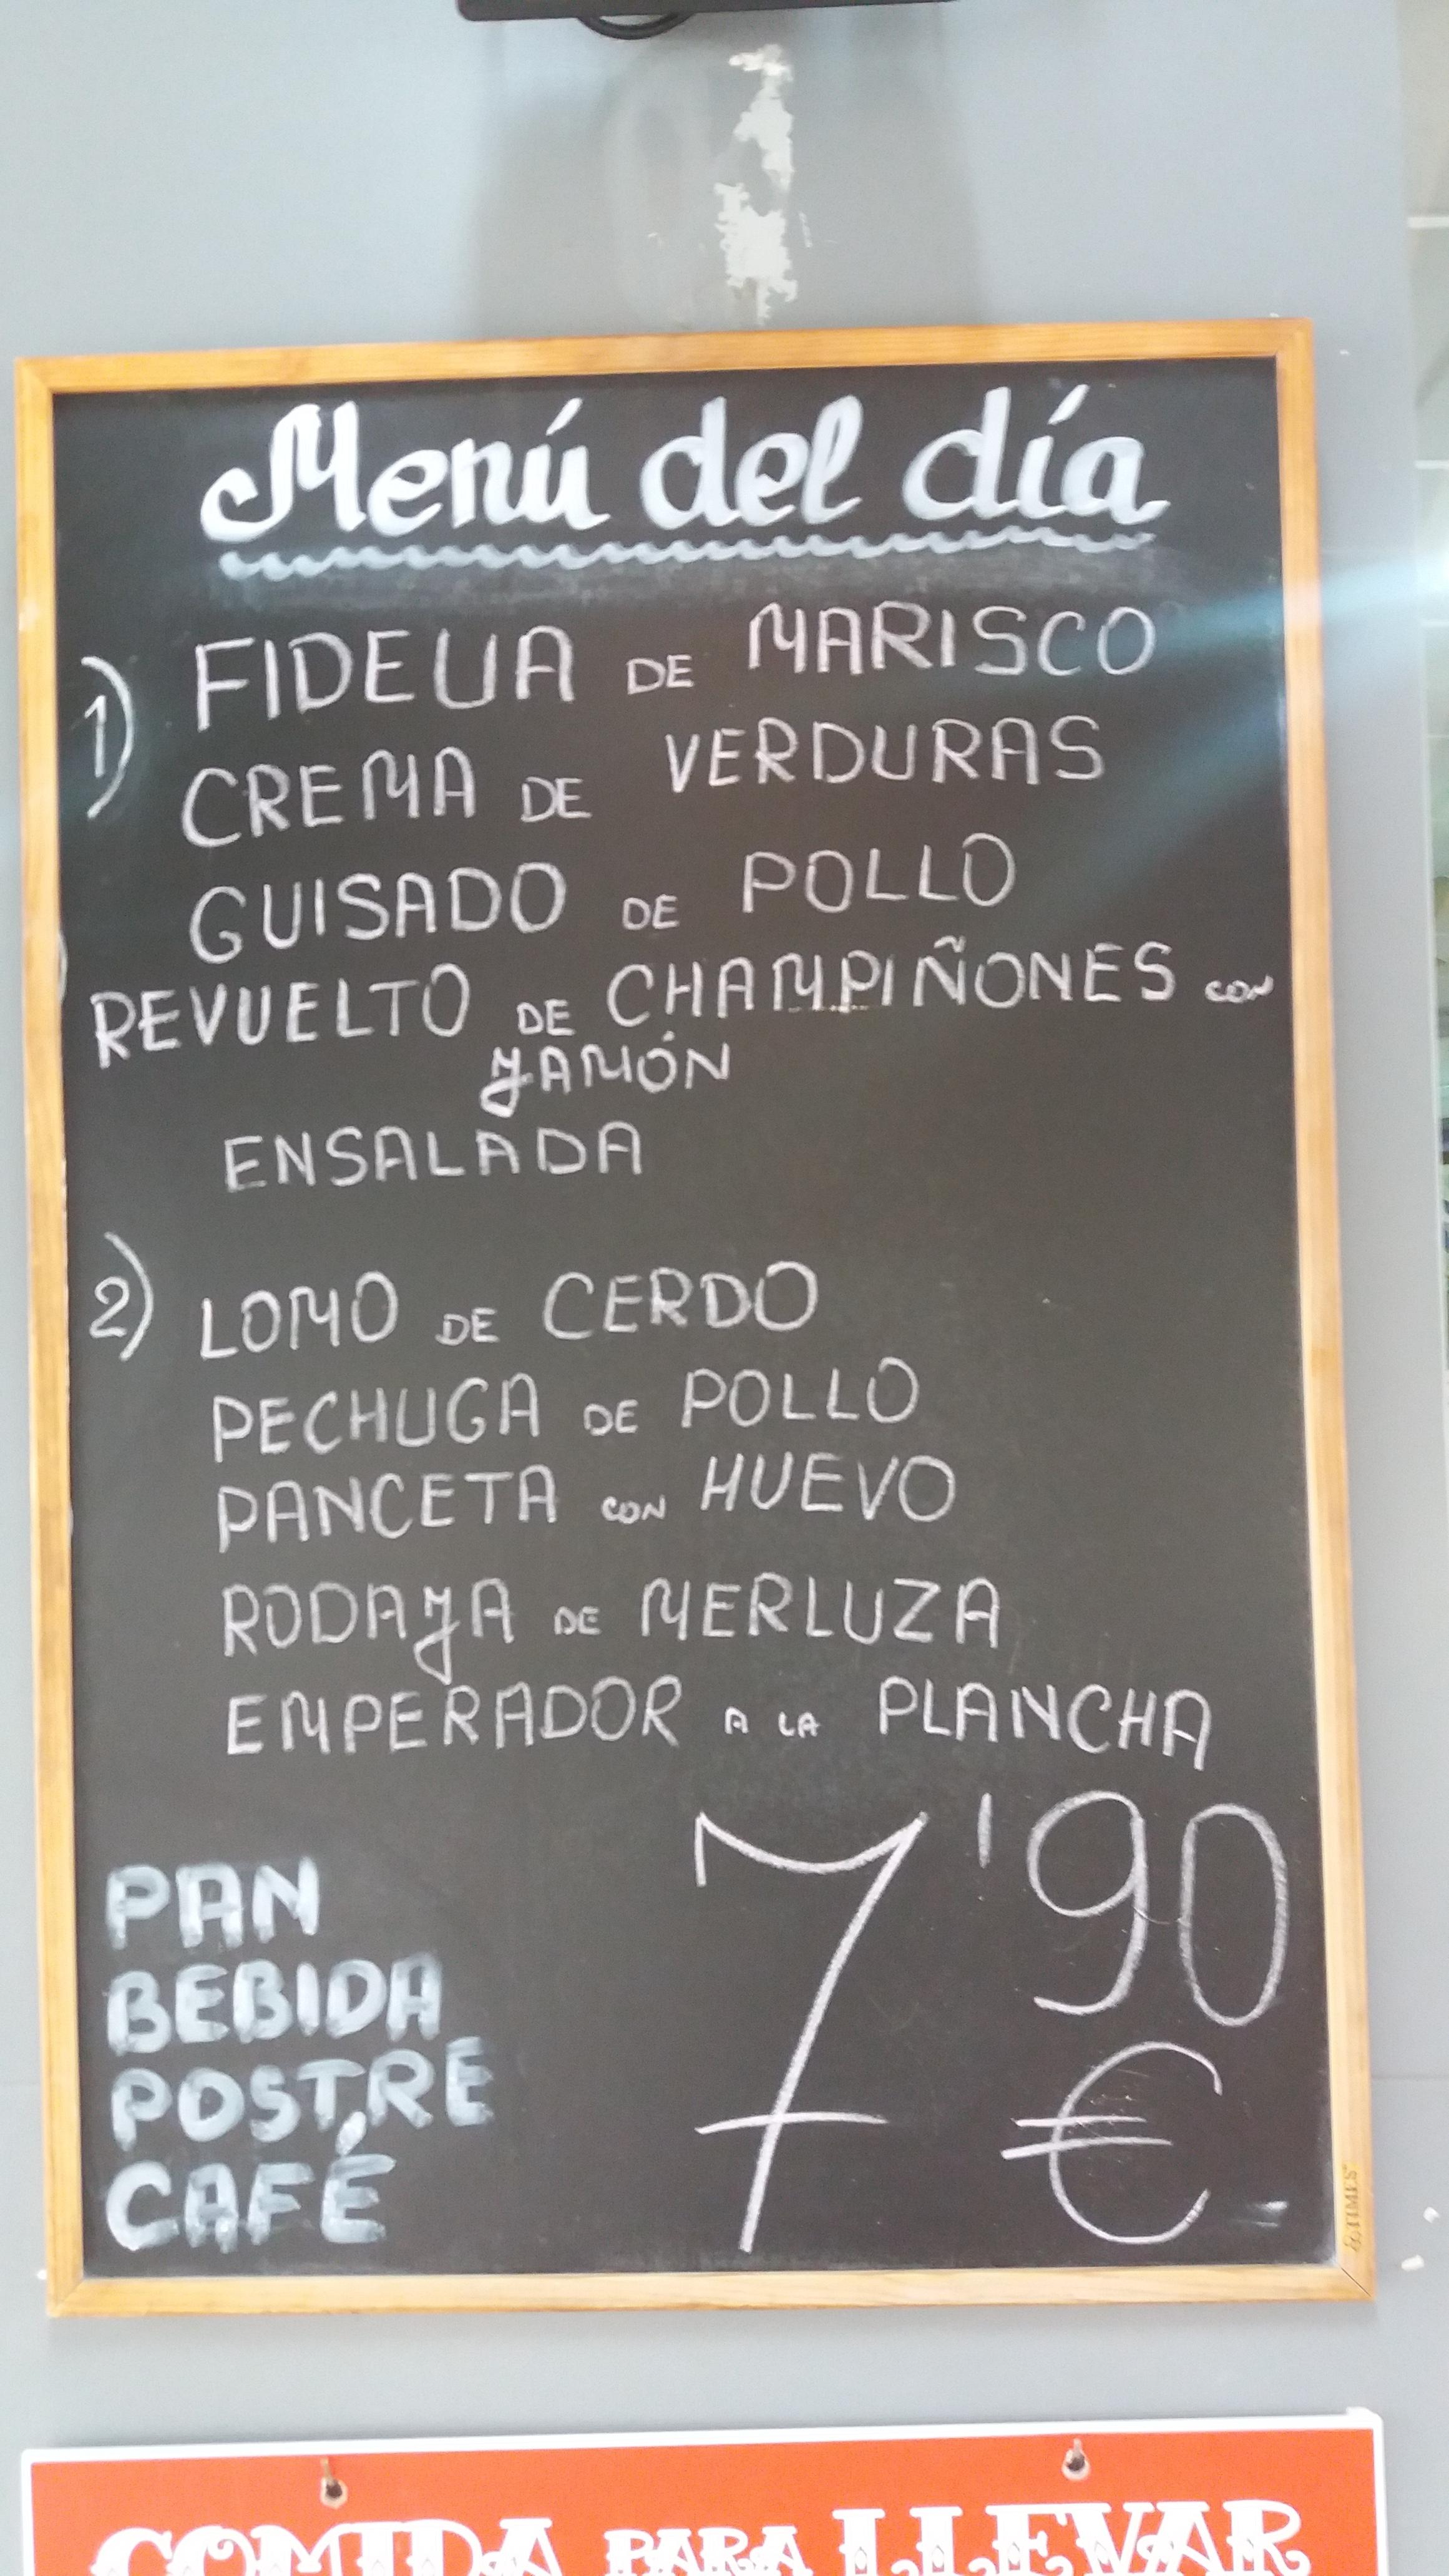 Menú del día
1) FIDEUA DE MARISCO
CREMA DE VERDURAS
GUISADO DE POLLO
REVUELTO DE CHAMPIÑONES CON
JAMÓN
ENSALADA
2) LOMO DE CERDO
PECHUGA DE POLLO
PANCETA CON HUEVO
RODAJA DE MERLUZA
EMPERADOR A LA PLANCHA
PAN
BEBIDA
POSTRE
CAFÉ
7'90
€
TIMES
COMIDA PARA LLEVAR